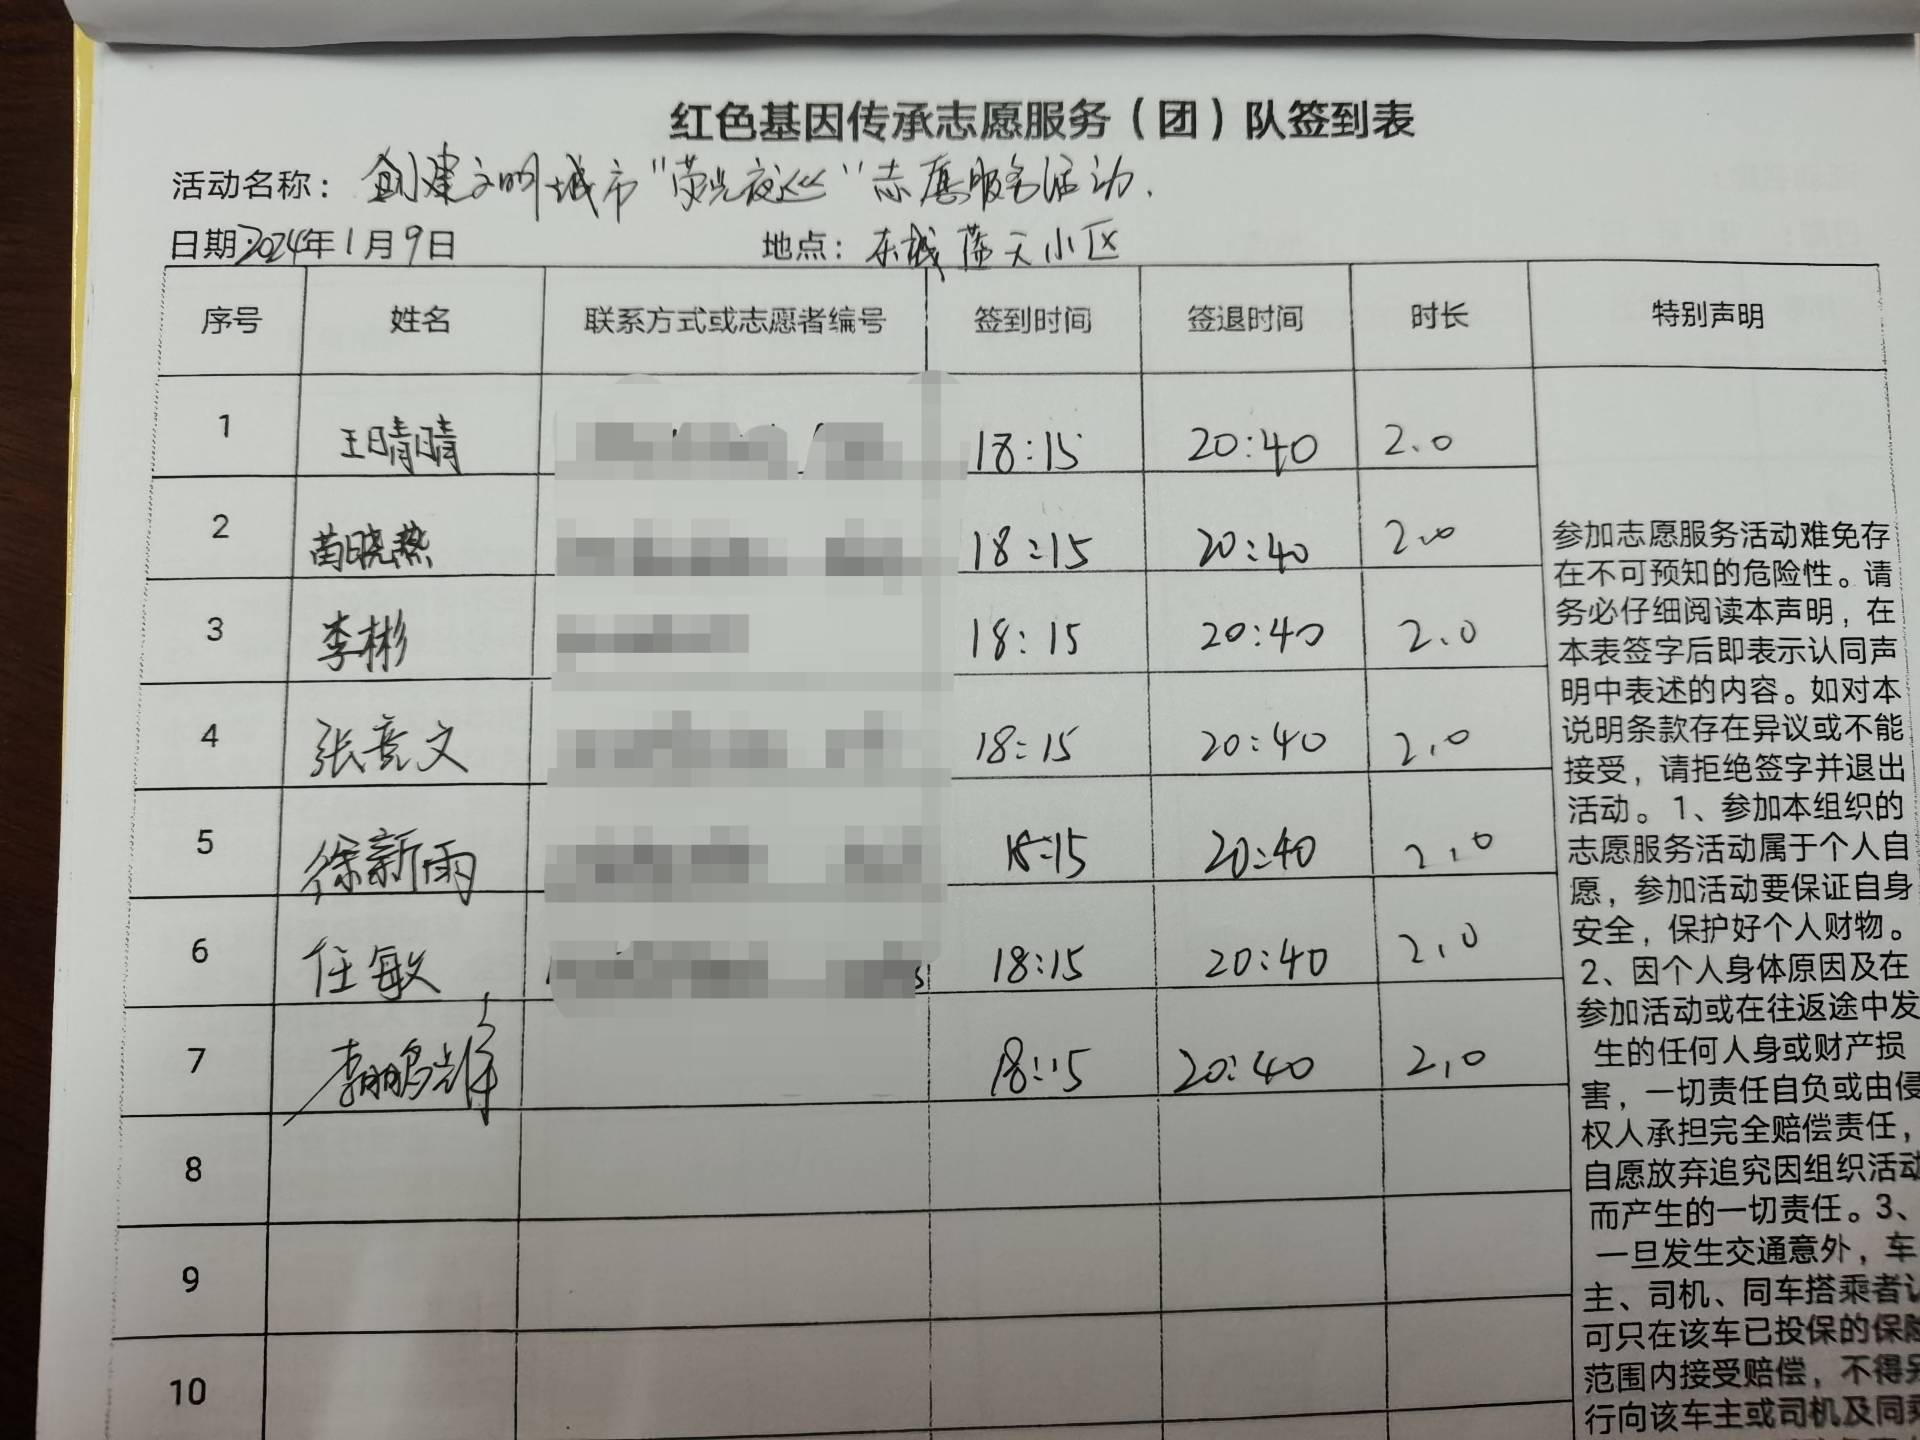 红色基因传承志愿服务（团）队签到表
活动名称：创建文明城市"荧光夜巡"志愿服务活动.
日期:2024年1月9日 地点：东城蓝天小区
序号 姓名 联系方式或志愿者编号 签到时间 签退时间 时长 特别声明
1 王晴晴 18:15 20:40 2.0
2 苗晓燕 18:15 20:40 2.0
3 李彬 18:15 20:40 2.0
4 张竞文 18:15 20:40 2.0
5 徐新雨 18:15 20:40 2.0
6 任敏 18:15 20:40 2.0
7 李鹏 18:15 20:40 2.0
8
9
10
参加志愿服务活动难免存
在不可预知的危险性。请
务必仔细阅读本声明，在
本表签字后即表示认同声
明中表述的内容。如对本
说明条款存在异议或不能
接受，请拒绝签字并退出
活动。1、参加本组织的
志愿服务活动属于个人自
愿，参加活动要保证自身
安全，保护好个人财物。
2、因个人身体原因及在
参加活动或在往返途中发
生的任何人身或财产损
害，一切责任自负或由侵
权人承担完全赔偿责任，
自愿放弃追究因组织活动
而产生的一切责任。3、
一旦发生交通意外，车
主、司机、同车搭乘者认
可只在该车已投保的保险
范围内接受赔偿，不得另
行向该车主或司机及同乘